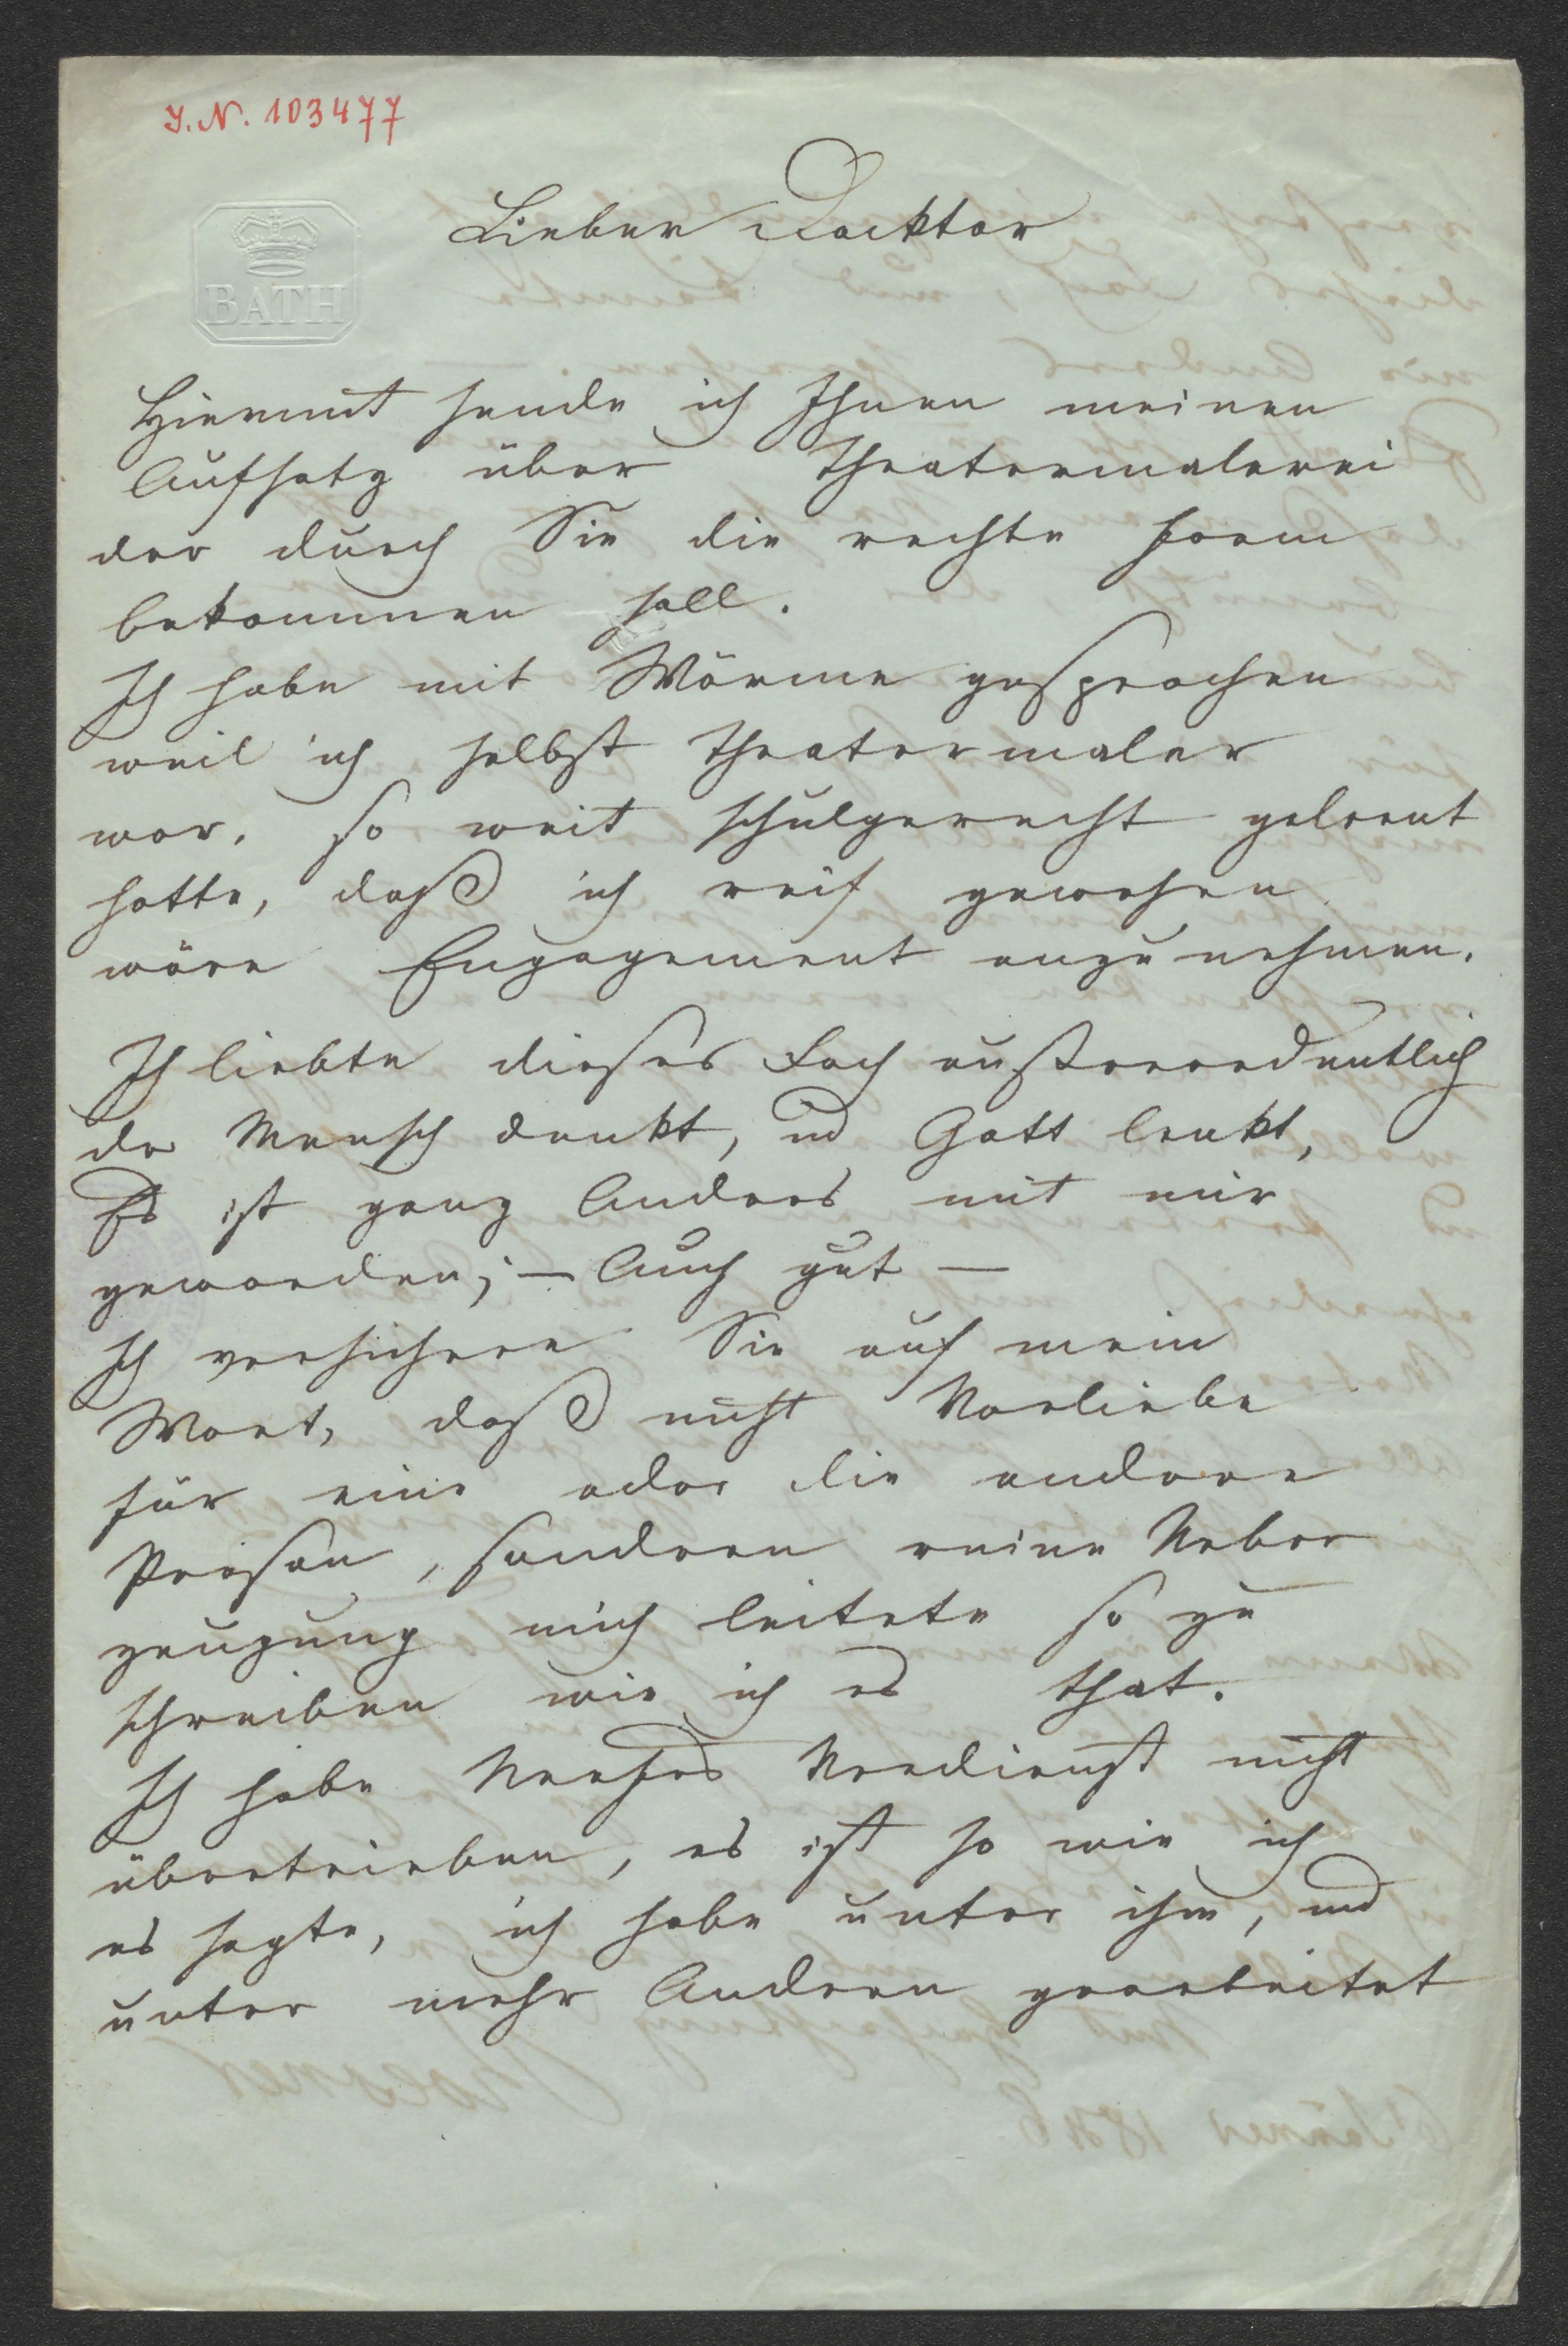 J.N. 103477
BATH
Lieber Docktor
Hiermit sende ich Ihnen meinen
Aufsatz über Theatermalerei
der durch Sie die rechte Form
bekommen soll.
Ich habe mit Wärme gesprochen
weil ich selbst Theatermaler
war, so weit schulgerecht gelernt
hatte, daß ich reif gewesen
wäre Engagement anzunehmen.
Ich liebte dieses Fach außerordentlich
der Mensch denkt, und Gott lenkt,
Es ist ganz Anders mit mir
geworden; — Auch gut —
Ich versichere Sie auf mein
Wort, daß nicht Vorliebe
für eine oder die andere
Person, sondern reine Ueber
zeugung mich leitete so zu
schreiben wie ich es that.
Ich habe Neefes Verdienst nicht
übertrieben, es ist so wie ich
es sagte, ich habe unter ihm, und
unter mehr Andern gearbeitet